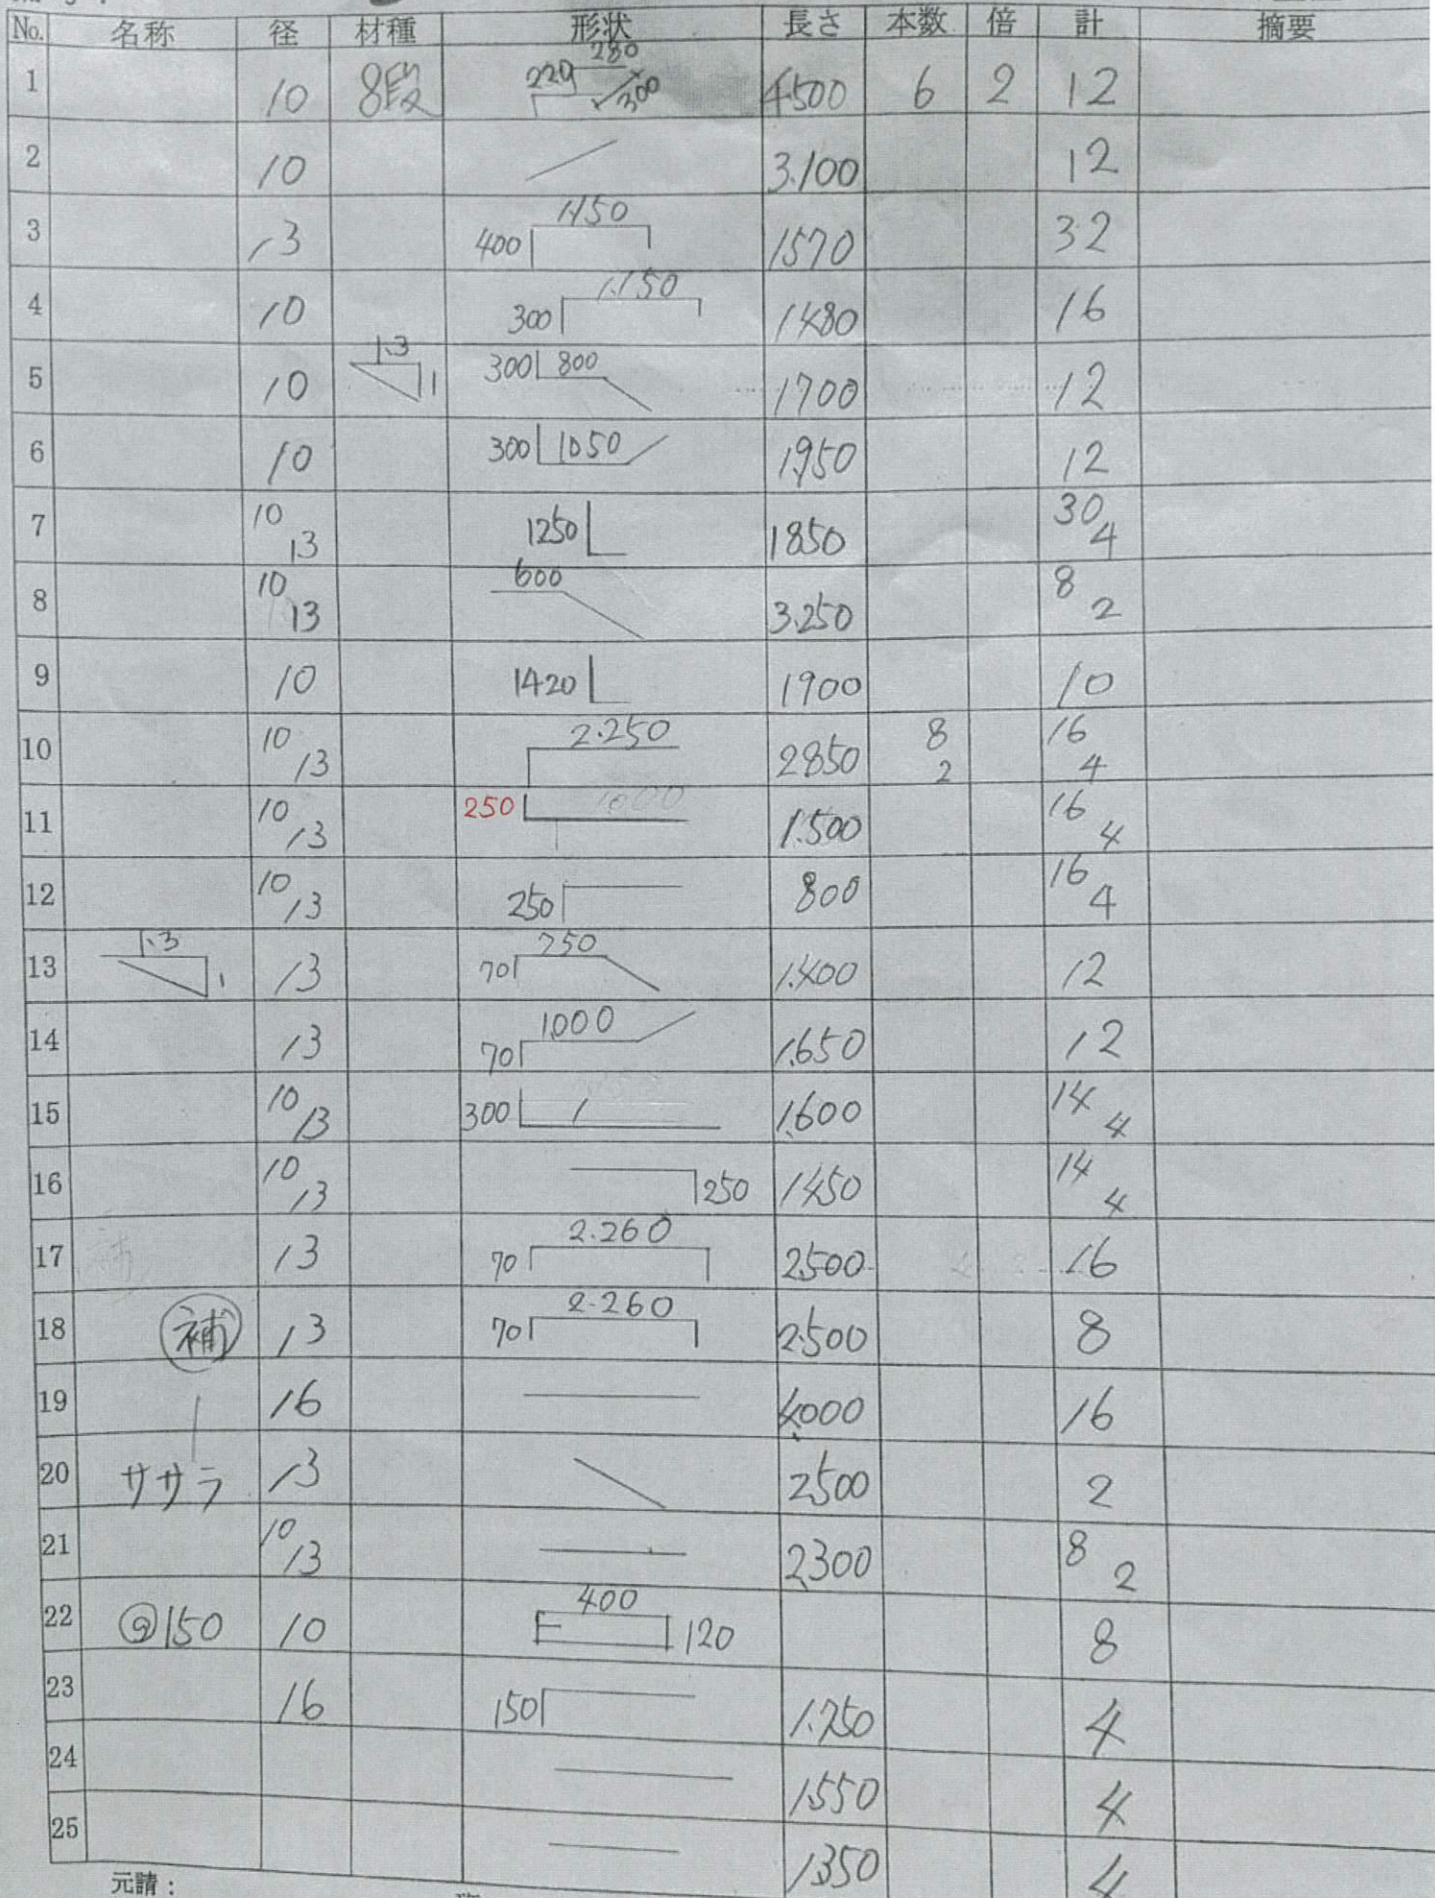 No. 名称 径 材種 形状 長さ 本数 倍 計 摘要
1 10 8段 220 280 300 4500 6 2 12
2 10 3.100 12
3 13 400 1,150 1570 32
4 10 300 1.150 1480 16
5 10 1.3 1 300 800 1700 12
6 10 300 1050 1,950 12
7 10 13 1250 1850 30 4
8 10 13 600 3.250 8 2
9 10 1420 1900 10
10 10 13 2.250 2850 8 2 16 4
11 10 13 250 1000 1.500 16 4
12 10 13 250 800 16 4
13 1.3 1 13 70 750 1.400 12
14 13 70 1,000 1.650 12
15 10 13 300 1,600 14 4
16 10 13 250 1450 14 4
17 補 13 70 2.260 2500 16
18 補 13 70 2.260 2.500 8
19 16 4,000 16
20 ササラ 13 2500 2
21 10 13 2,300 8 2
22 @150 10 400 120 8
23 16 150 1.750 4
24 1.550 4
25 1,350 4
元請：